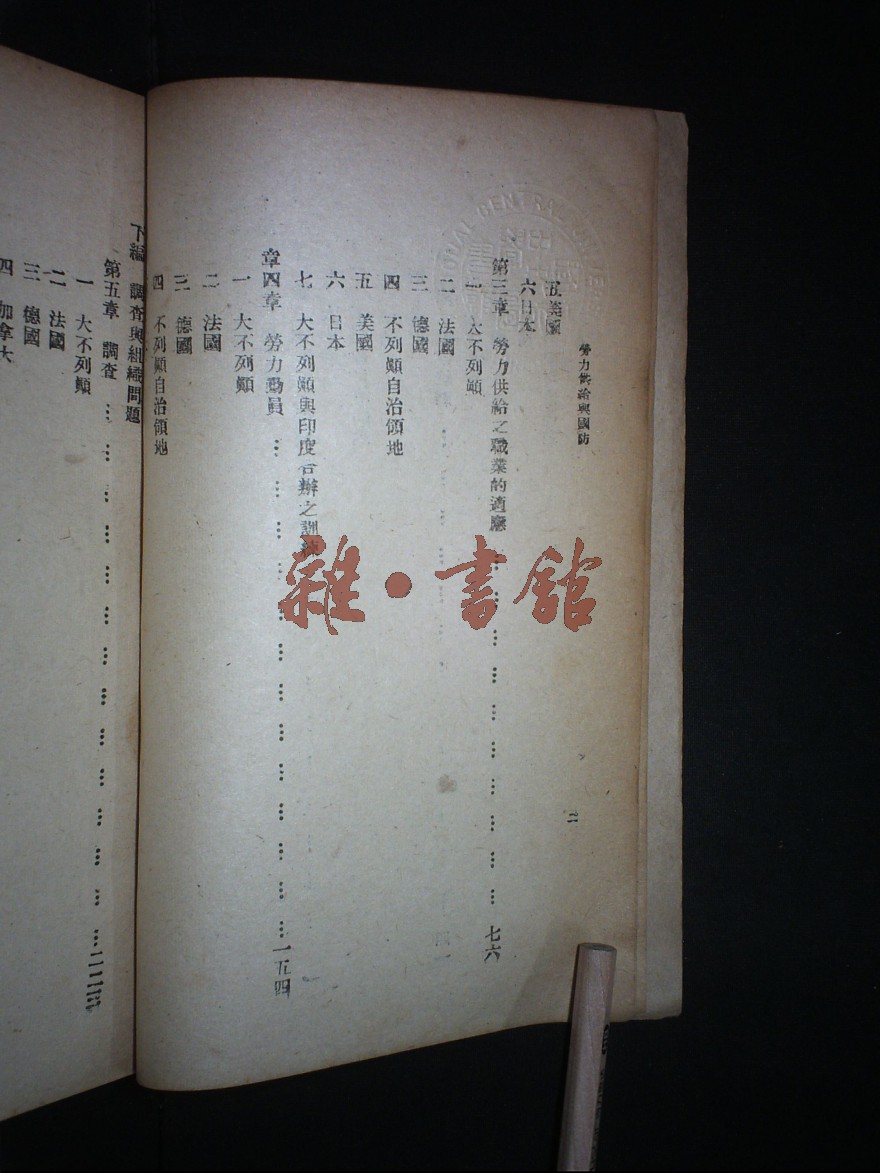 勞力供給與國防
二
五 美國
六 日本
第三章 勞力供給之職業的適應 … … … … … … … … 七六
一 大不列顛
二 法國
三 德國
四 不列顛自治領地
五 美國
六 日本
七 大不列顛與印度合辦之訓練
章四章 勞力動員 … … … … … … … … … … … … 一五四
一 大不列顛
二 法國
三 德國
四 不列顛自治領地
下編 調查與組織問題
第五章 調查 … … … … … … … … … … … … …
一 大不列顛
二 法國
三 德國
四 加拿大
雜·書館
CENTRAL